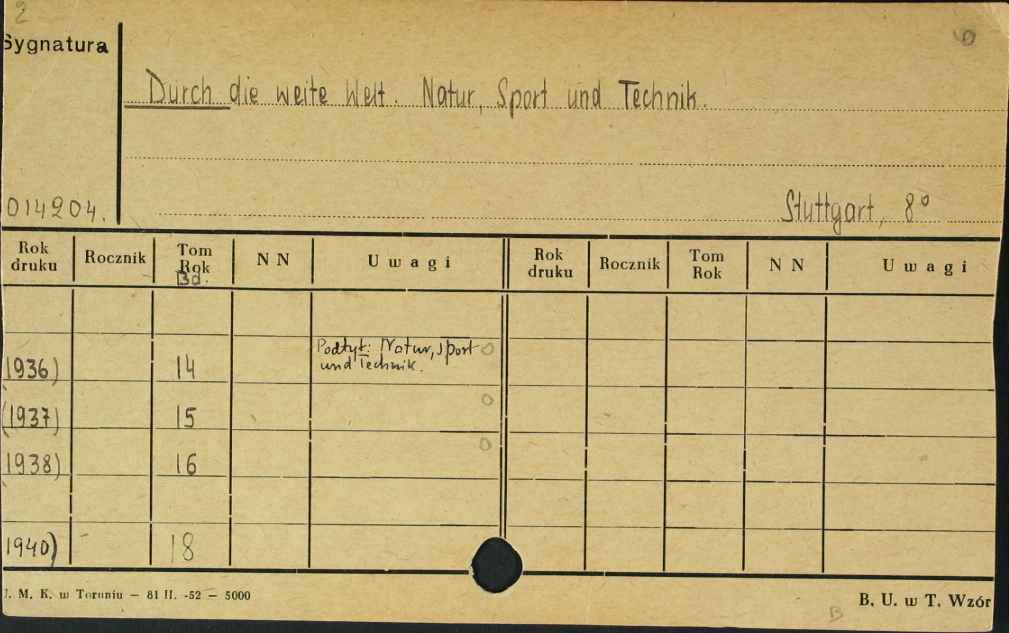 2
Sygnatura
Durch die weite Welt. Natur, Sport und Technik.
014204.
Stuttgart, 8°
Rok druku Rocznik Tom Rok Bd. N N Uwagi Rok druku Rocznik Tom Rok N N Uwagi
(1936) 14 Podtyt: Natur, Sport und Technik.
(1937) 15
1938) 16
1940) 18
M. K. w Toruniu — 81 II. -52 — 5000
B. U. w T. Wzór
B